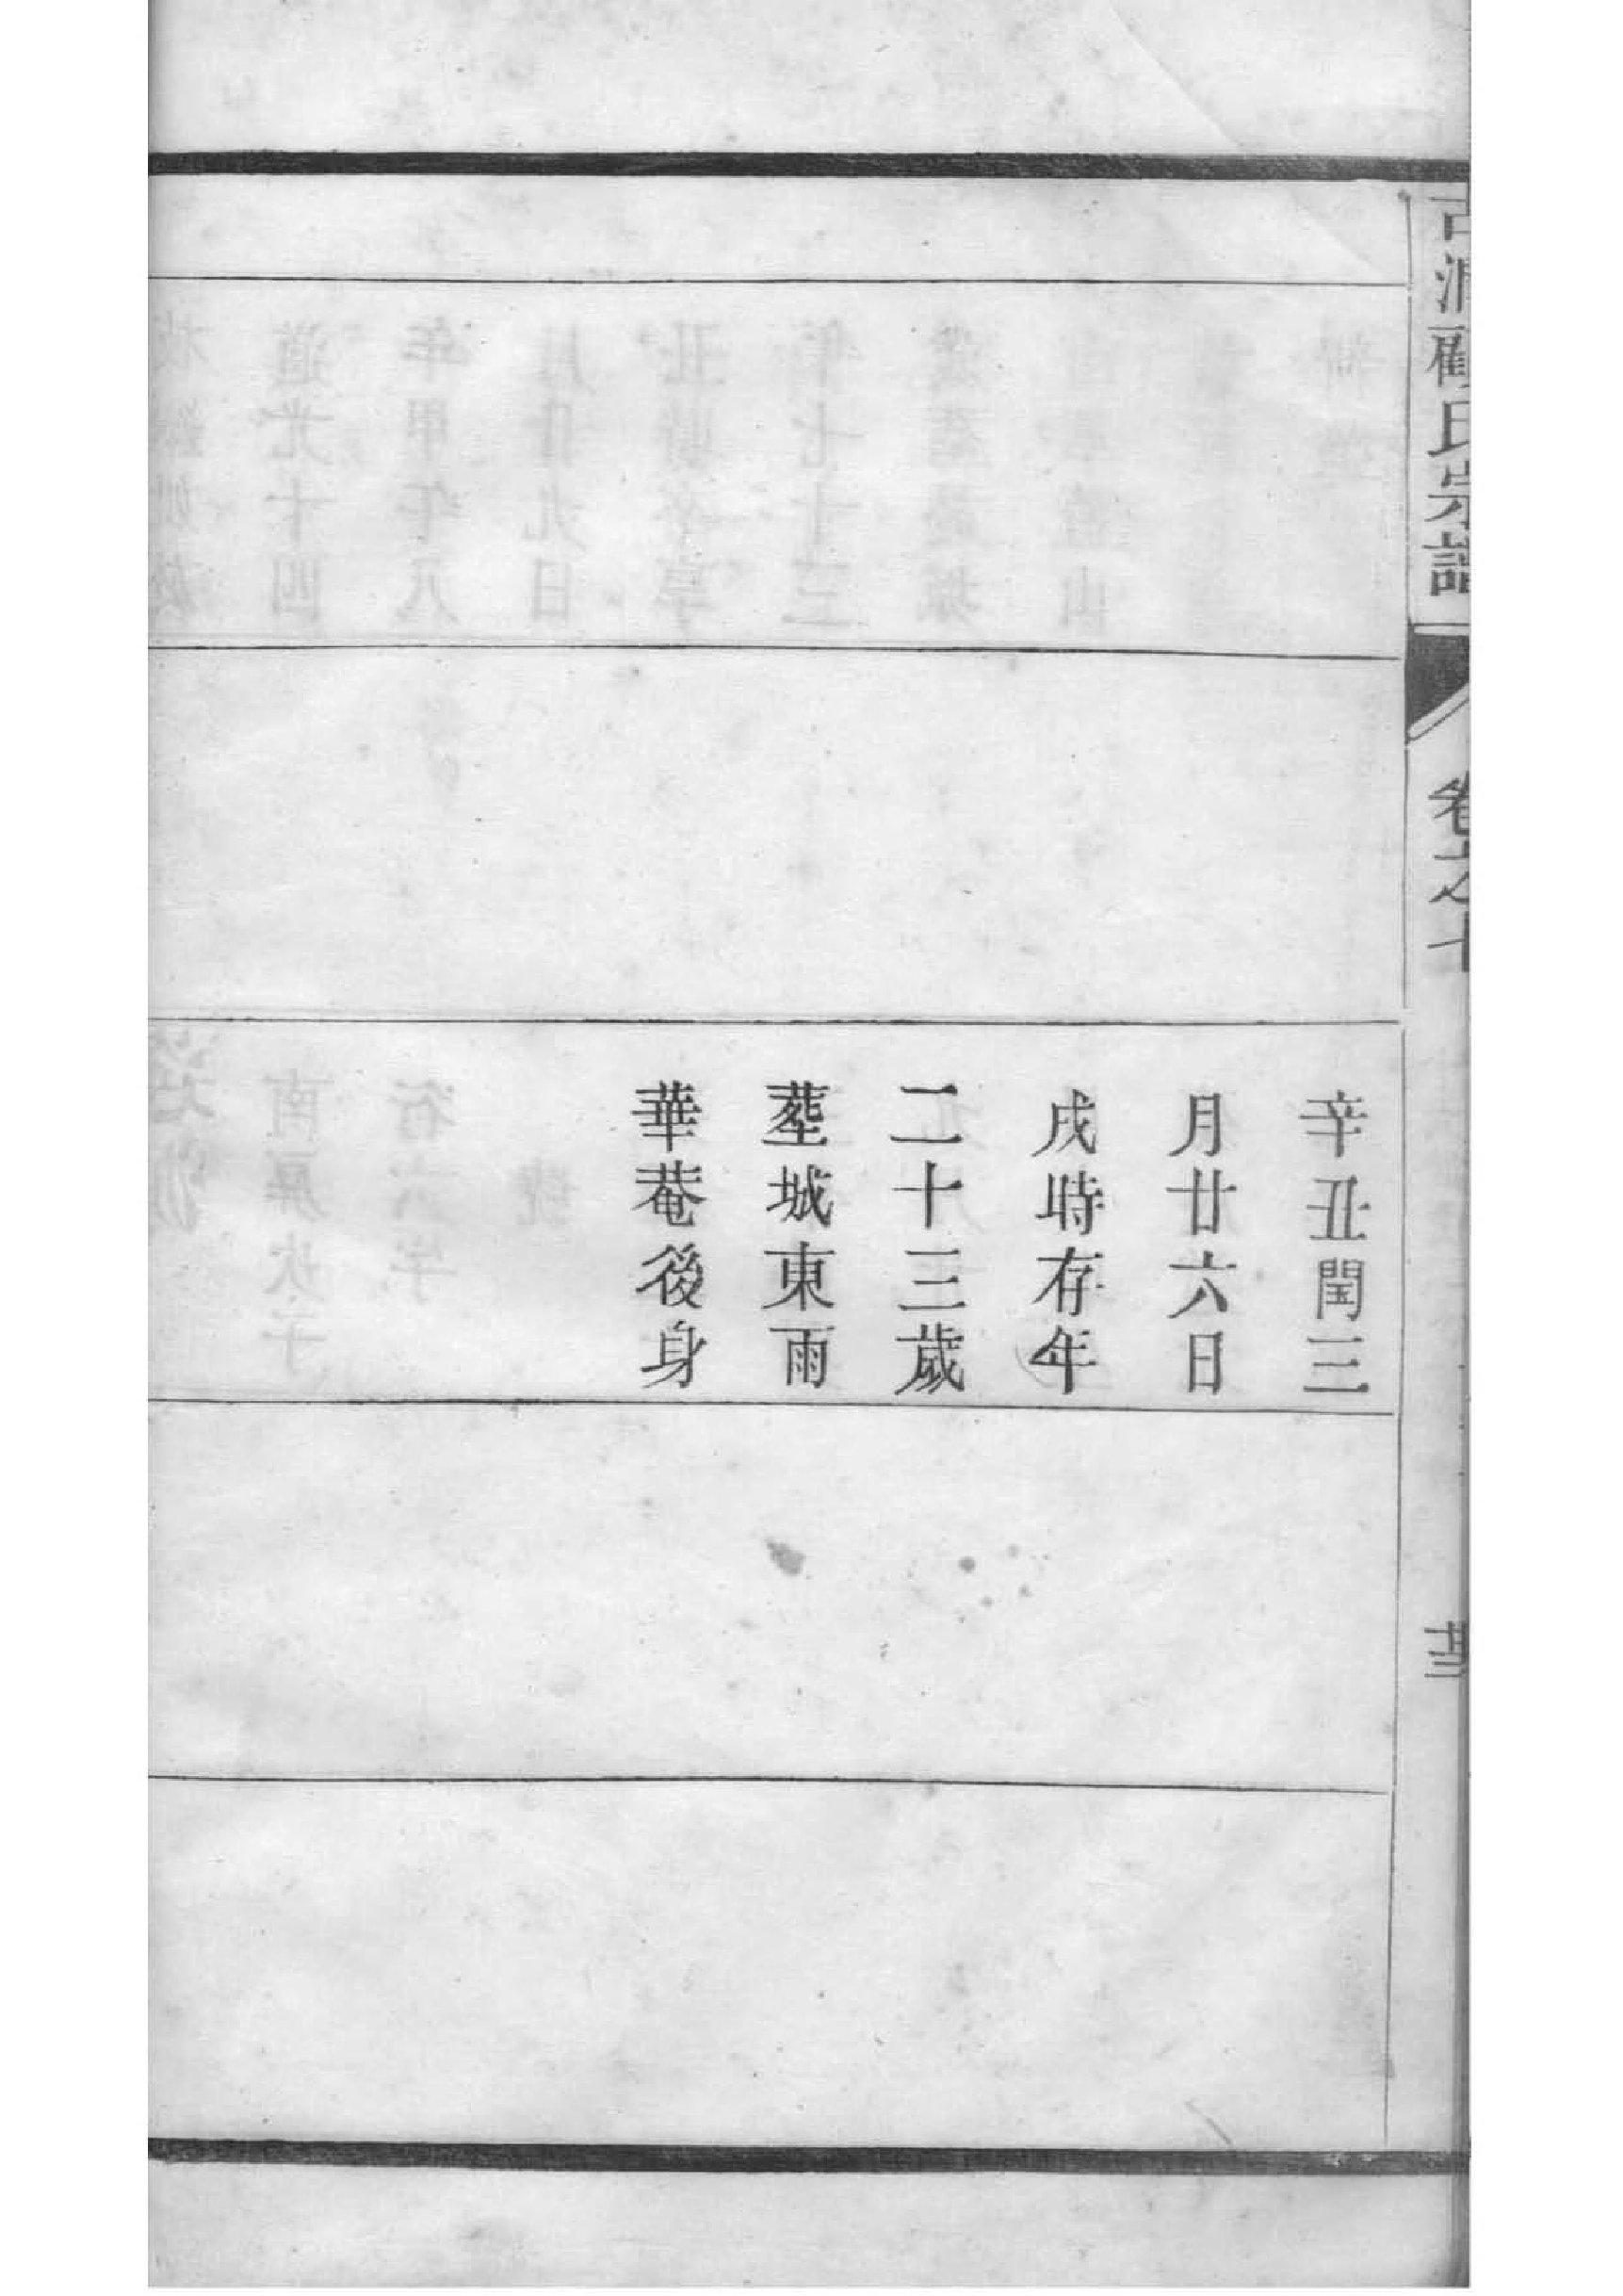 古潤顧氏宗譜
卷之七
辛丑閏三
月廿六日
戌時存年
二十三歲
塟城東雨
華菴後身